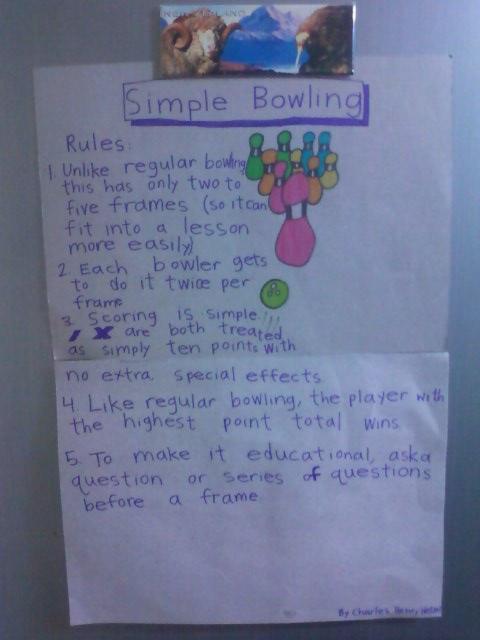 Simple Bowling
Rules:
1. Unlike regular bowling
this has only two to
five frames (so it can
fit into a lesson
more easily)
2. Each bowler gets
to do it twice per
frame
3. Scoring is simple
/ X are both treated
as simply ten points with
no extra special effects
4. Like regular bowling, the player with
the highest point total wins
5. To make it educational, ask a
question or series of questions
before a frame
By Charles Henry